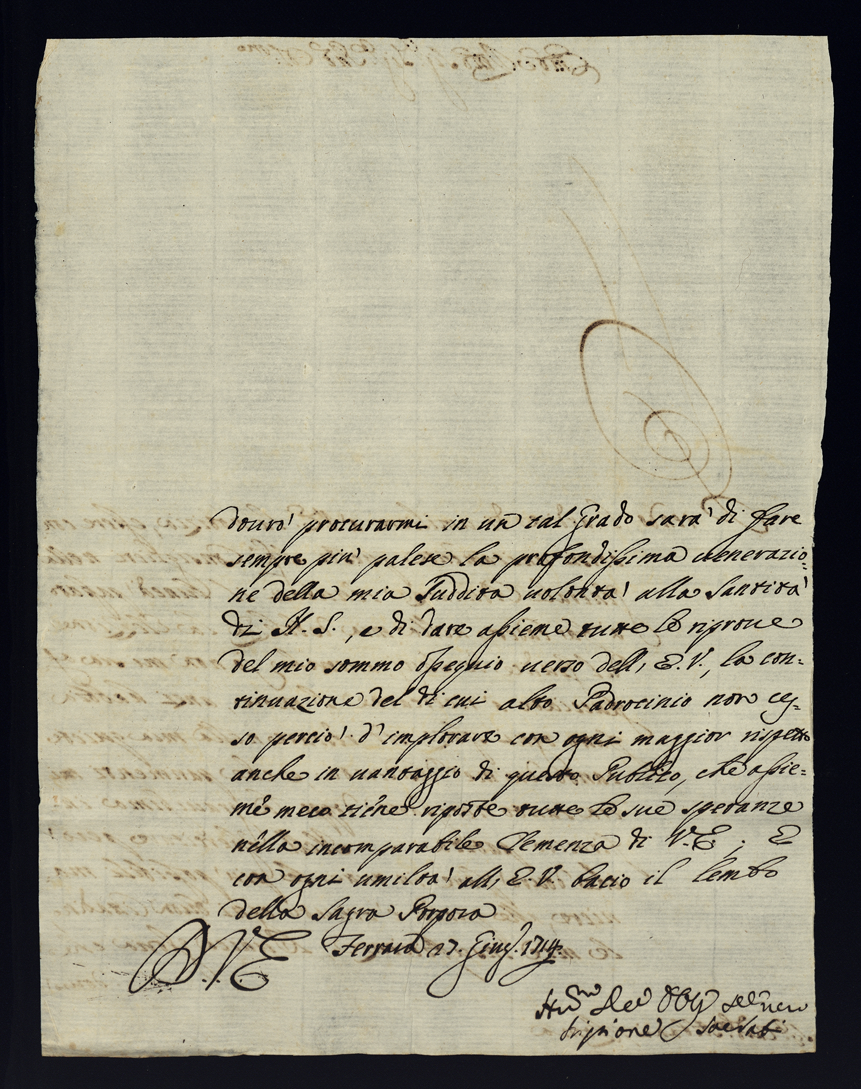 dourò procurarmi in un tal grado sarà di fare
sempre più palese la profondissima venerazio=
ne della mia suddita volontà alla Santità
di N. S., e di dare assieme tutte le riprove
del mio sommo ossequio verso dell'E. V., la con=
tinuazione del di cui alto Padrocinio non ces=
so perciò d'implorare con ogni maggior rispetto
anche in vantaggio di questo Publico, che assie=
me meco tiene riposte tutte le sue speranze
nella incomparabile Clemenza di V. E.; E
con ogni umiltà all'E. V. bacio il lembo
della Sagra Porpora
D. V. E Ferrara 27 Giug.º 1714.